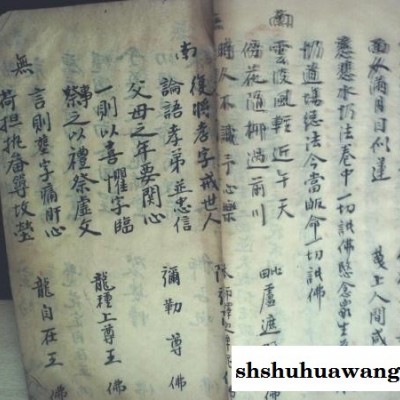 滿月目似蓮
上人間咸
慈悲水懺法卷中一切諸佛愍念眾生
道場懺法今當皈命一切諸佛
南
雲淡風輕近午天
傍花隨柳過前川
毗盧遮
時人不識予心樂
南
復將孝字戒世人
論語孝弟並忠信
彌勒尊佛
父母之年要關心
一則以喜懼字臨
龍種上尊王佛
之以禮祭虛文
無
言則 字痛肝心
龍自在王佛
荷担挑 尋坟塋
shshuhuawang